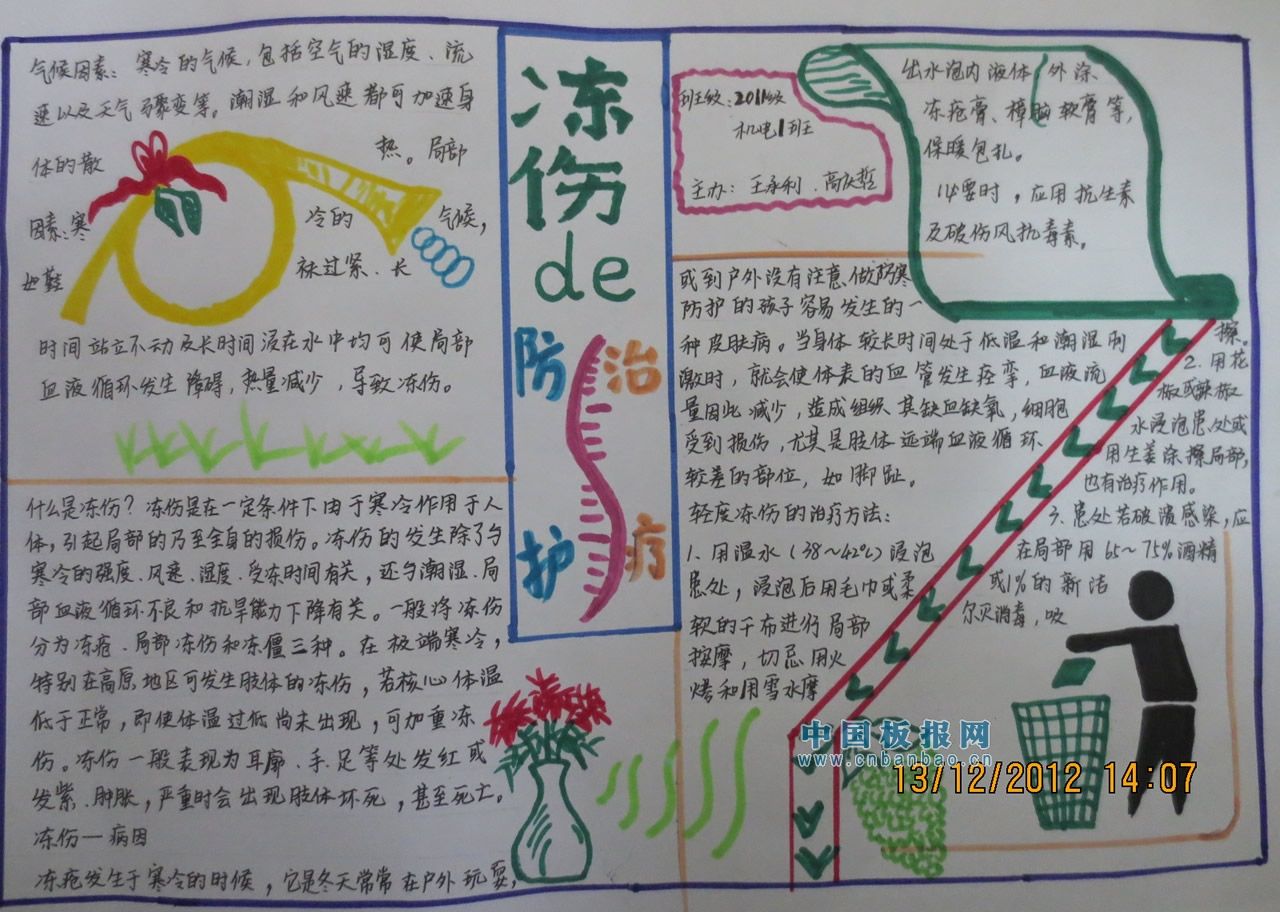 气候因素：寒冷的气候，包括空气的湿度、流
速以及天气骤变等。潮湿和风速都可加速身
体的散热。局部
因素：寒冷的气候，
如鞋袜过紧、长
时间站立不动及长时间浸在水中均可使局部
血液循环发生障碍，热量减少，导致冻伤。
什么是冻伤？冻伤是在一定条件下由于寒冷作用于人
体，引起局部的乃至全身的损伤。冻伤的发生除了与
寒冷的强度、风速、湿度、受冻时间有关，还与潮湿、局
部血液循环不良和抗旱能力下降有关。一般将冻伤
分为冻疮、局部冻伤和冻僵三种。在极端寒冷，
特别在高原地区可发生肢体的冻伤，若核心体温
低于正常，即使体温过低尚未出现，可加重冻
伤。冻伤一般表现为耳廓、手、足等处发红或
发紫、肿胀，严重时会出现肢体坏死，甚至死亡。
冻伤—病因
冻疮发生于寒冷的时候，它是冬天常常在户外玩耍，
冻
伤
de
防治
护疗
班级：2011级
机电1班
主办：王永利、高庆哲
出水泡内液体，外涂
冻疮膏、樟脑软膏等，
保暖包扎。
必要时，应用抗生素
及破伤风抗毒素。
或到户外没有注意做防寒
防护的孩子容易发生的一
种皮肤病。当身体较长时间处于低温和潮湿刺
激时，就会使体表的血管发生痉挛，血液流
量因此减少，造成组织其缺血缺氧，细胞
受到损伤，尤其是肢体远端血液循环
较差的部位，如脚趾。
轻度冻伤的治疗方法：
1、用温水（38～42℃）浸泡
患处，浸泡后用毛巾或柔
软的干布进行局部
按摩，切忌用火
烤和用雪水摩
擦。
2、用花
椒或辣椒
水浸泡患处或
用生姜涂擦局部，
也有治疗作用。
3、患处若破溃感染，应
在局部用65～75%酒精
或1%的新洁
尔灭消毒，吸
中国板报网
www.cnbanbao.cn
13/12/2012 14:07